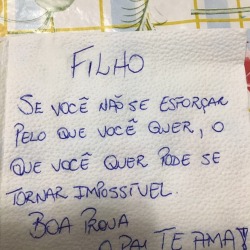 FILHO
SE VOCÊ NÃO SE ESFORÇAR
PELO QUE VOCÊ QUER, O
QUE VOCÊ QUER PODE SE
TORNAR IMPOSSÍVEL.
BOA PROVA
O PAI TE AMA!